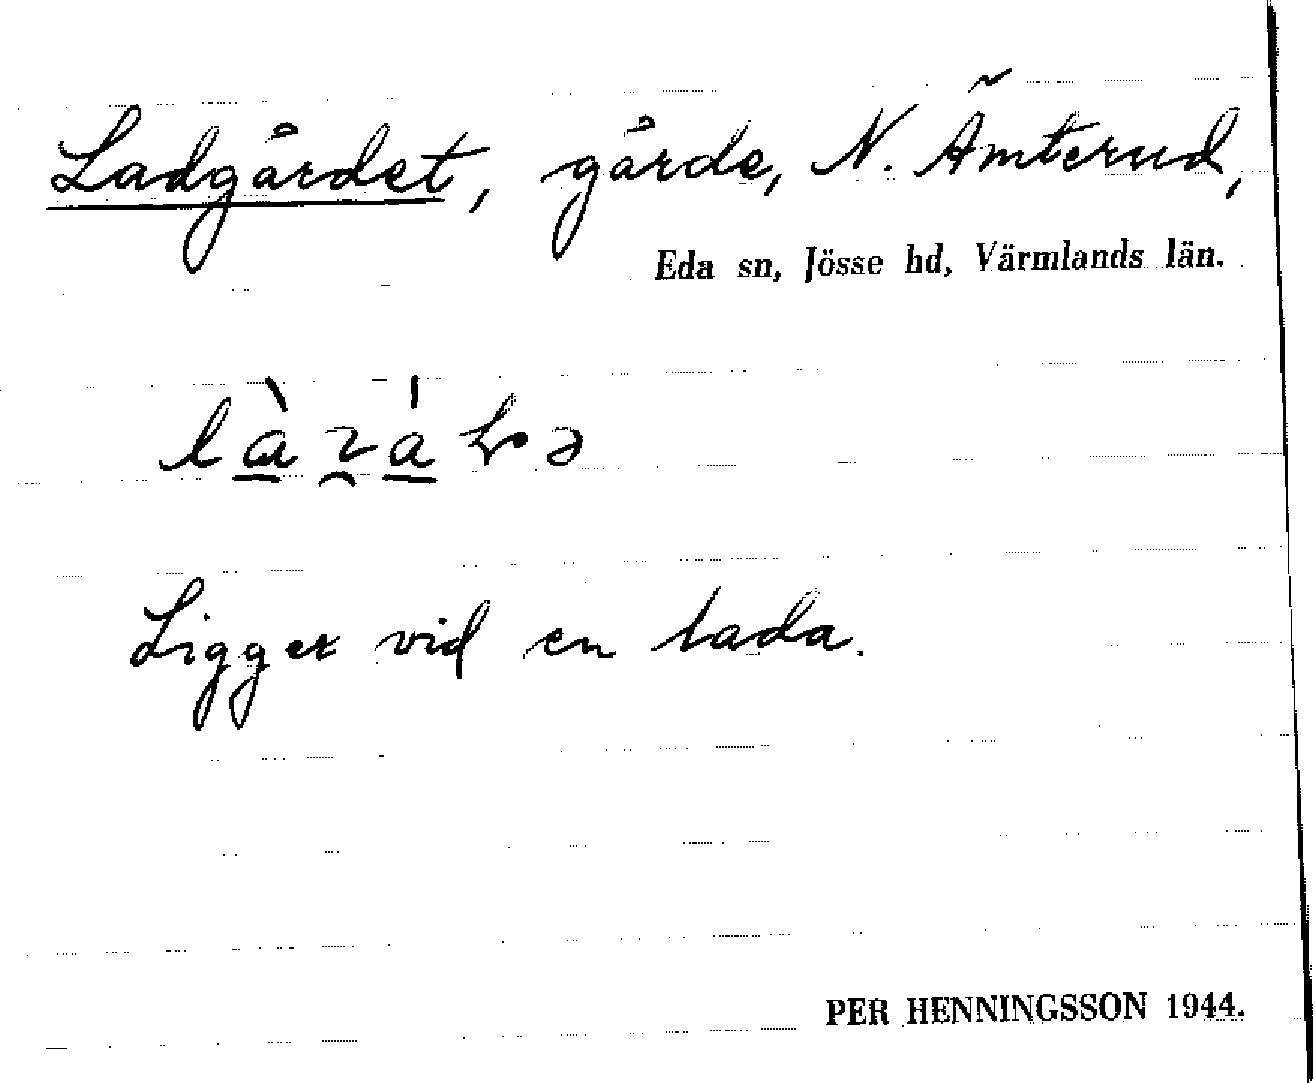 Ladgärdet, gärde, N. Ämterud,
Eda sn, Jösse hd, Värmlands län.
Ligger vid en lada.
PER HENNINGSSON 1944.